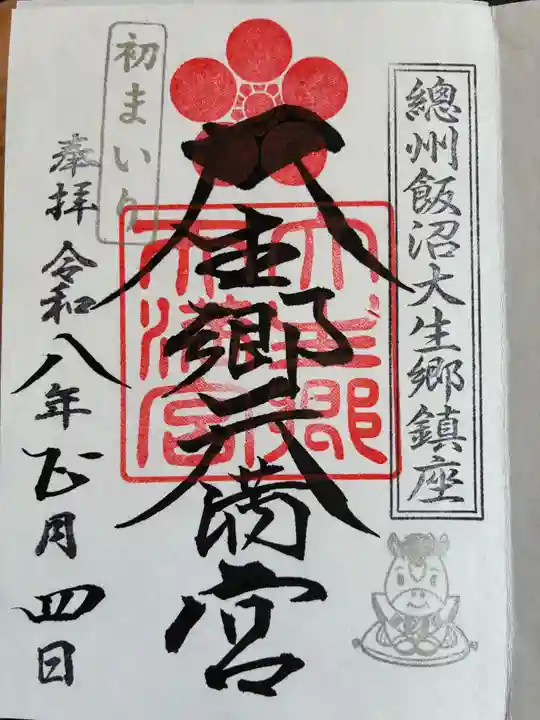 總州飯沼大生郷鎮座
大生郷天満宮
大生郷天満宮
初まいり
奉拝 令和八年正月四日